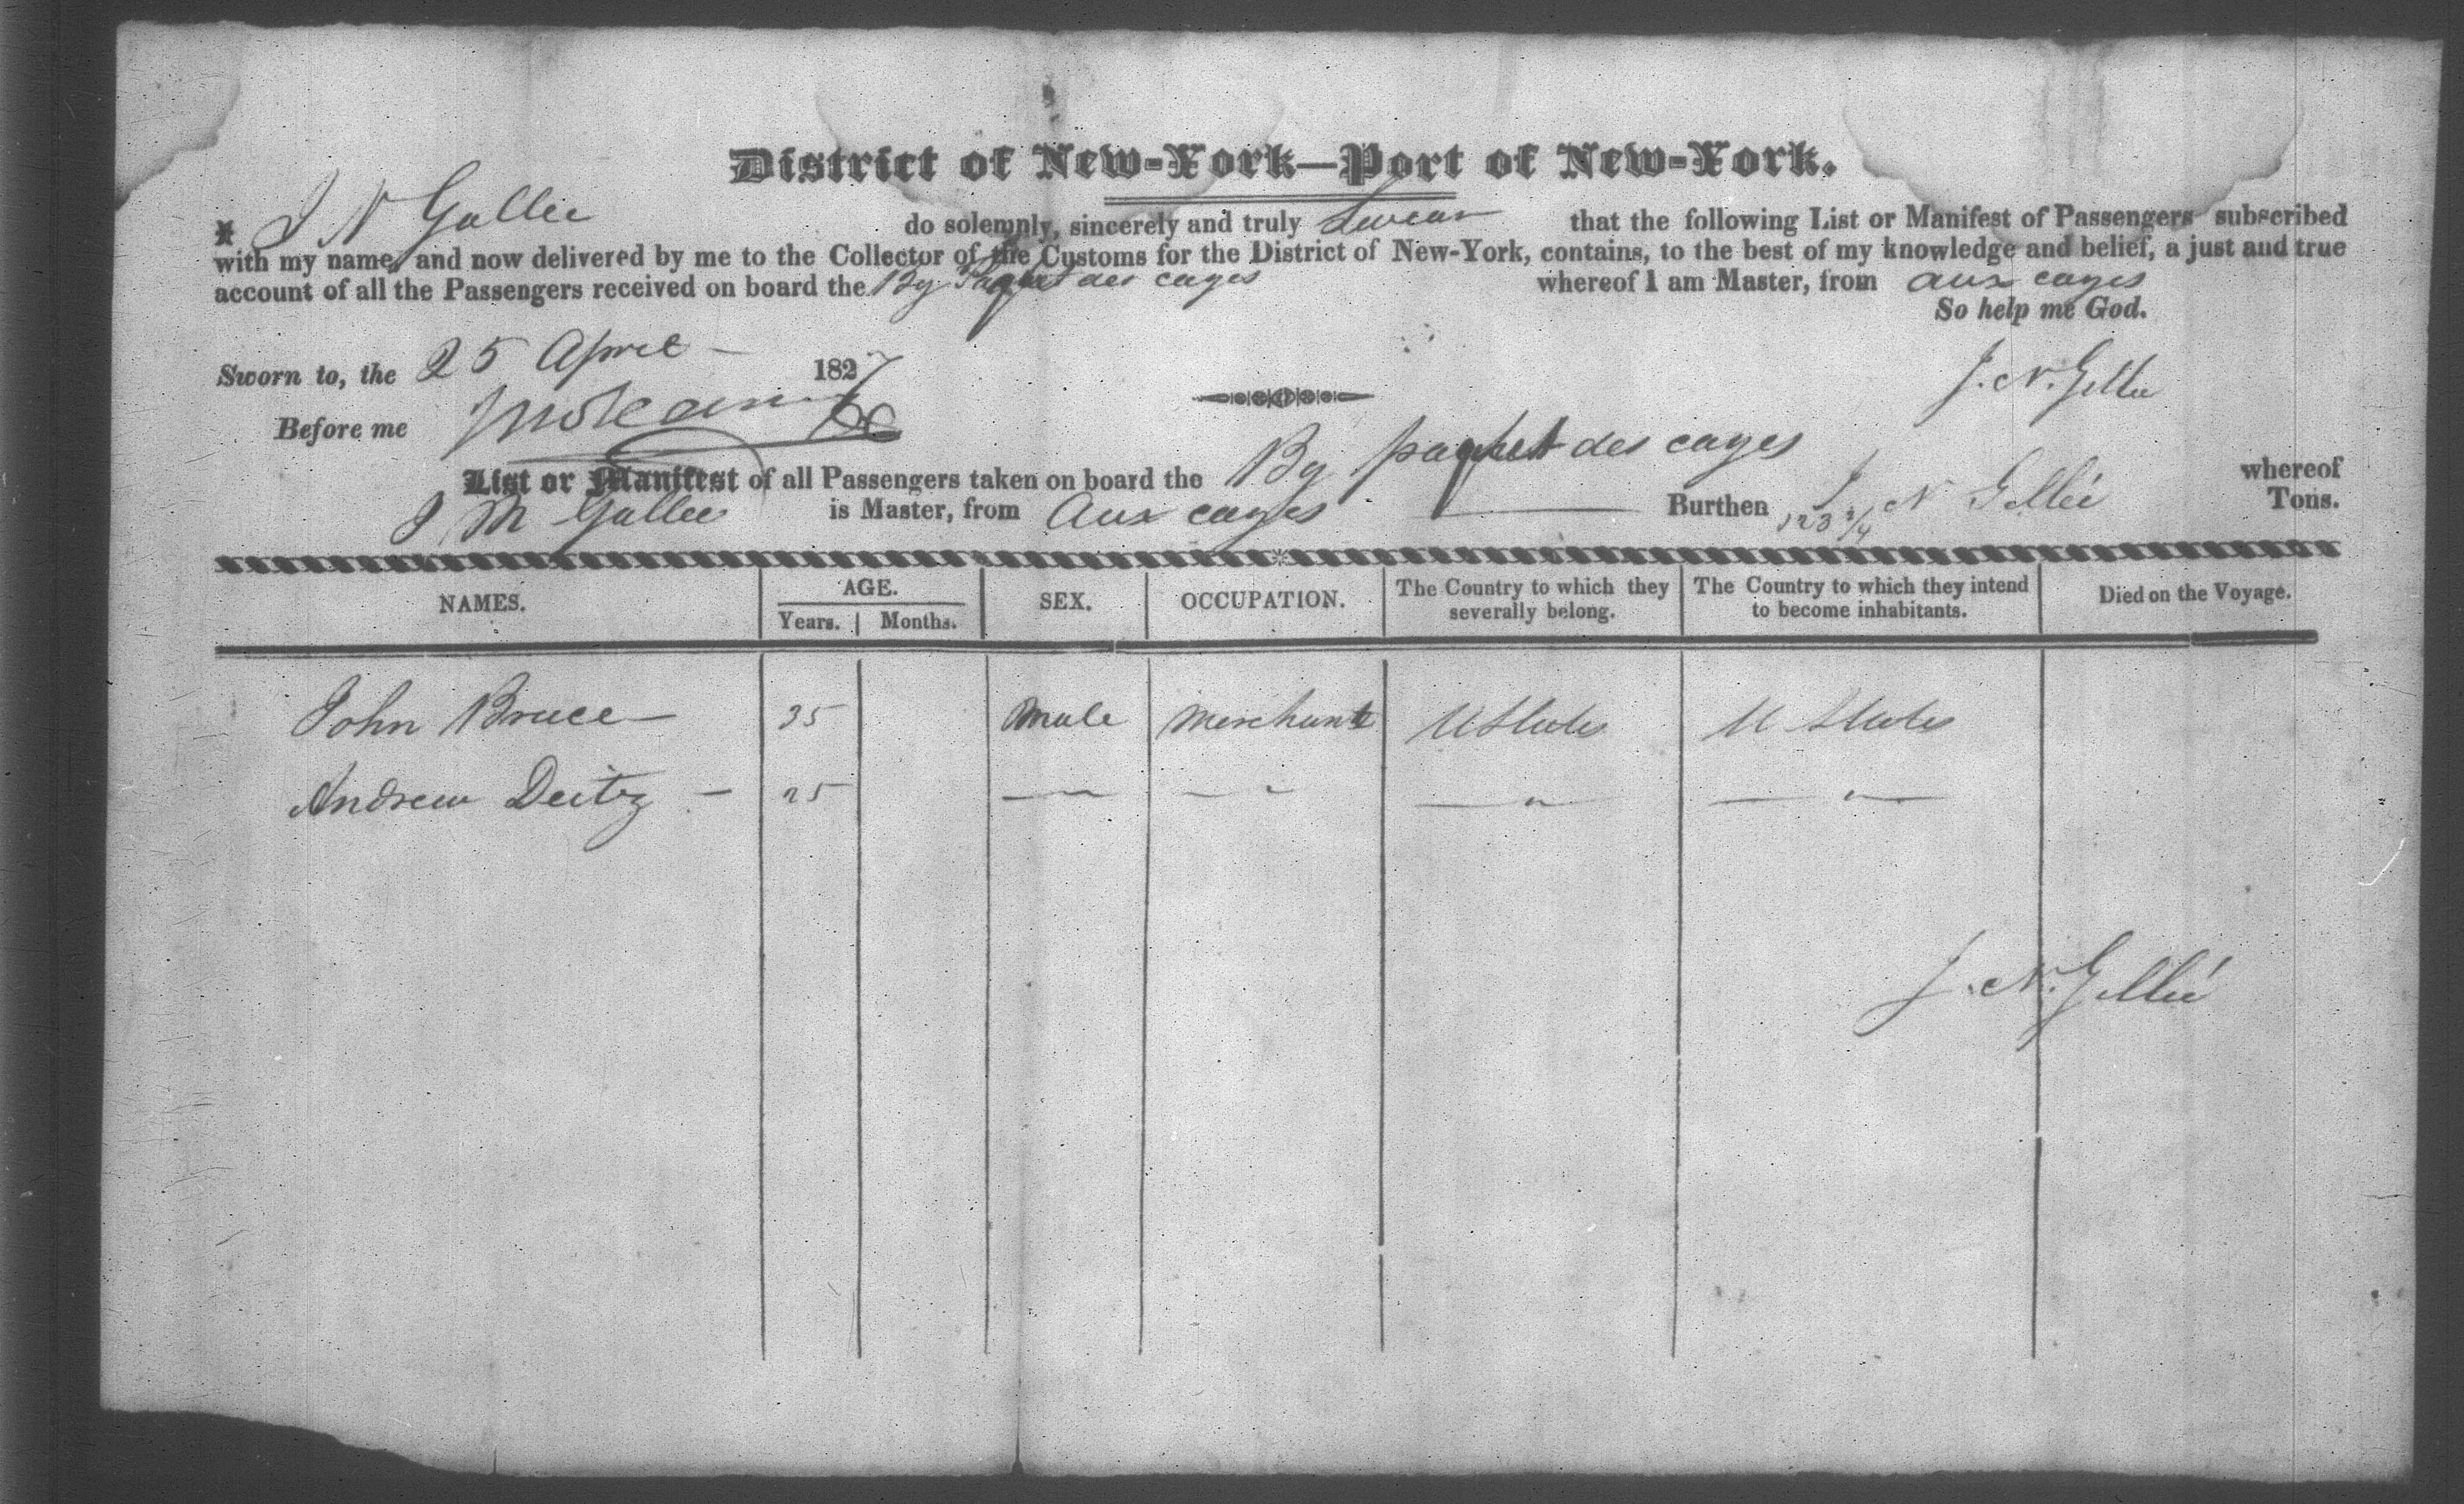 District of New-York—Port of New-York.
I J N Gallee do solemnly, sincerely and truly Swear that the following List or Manifest of Passengers subscribed
with my name, and now delivered by me to the Collector of the Customs for the District of New-York, contains, to the best of my knowledge and belief, a just and true
account of all the Passengers received on board the By Paquet des cayes whereof I am Master, from aux cayes
So help me God.
Sworn to, the 25 April 1827
J. N. Gellee
Before me
List or Manifest of all Passengers taken on board the By paquet des cayes whereof
J M Gallee is Master, from Aux cayes Burthen J N Gellée Tons.
123 3/4
NAMES. AGE. SEX. OCCUPATION. The Country to which they severally belong. The Country to which they intend to become inhabitants. Died on the Voyage.
Years. Months.
John Bruce — 35 Male Merchant U States U States
Andrew Deitz — 25 — " — " — " — — " —
J. N. Gellée